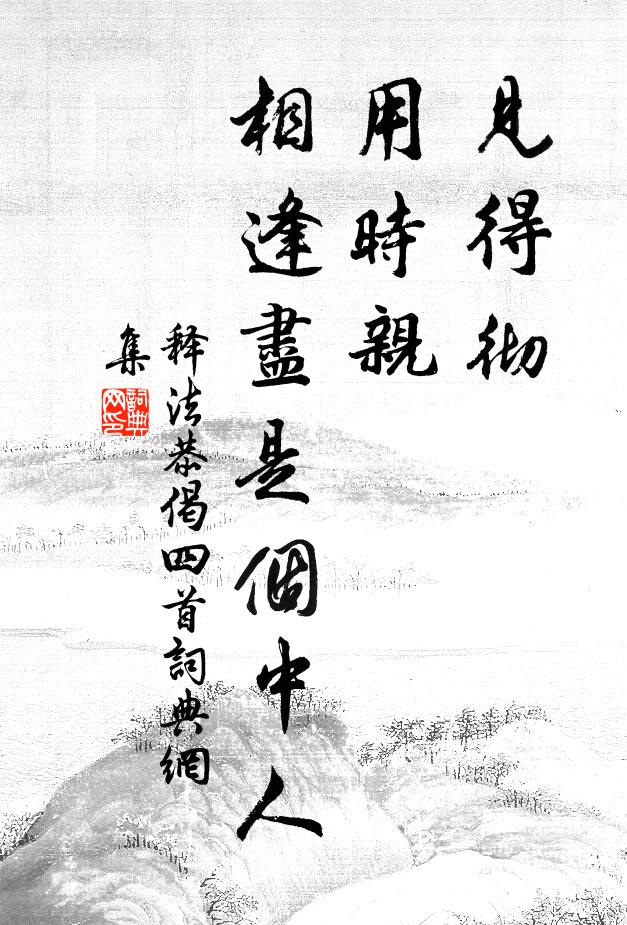 見得彻
用時親
相逢盡是個中人
释法恭偈四首詞典網
集
詞典
网印